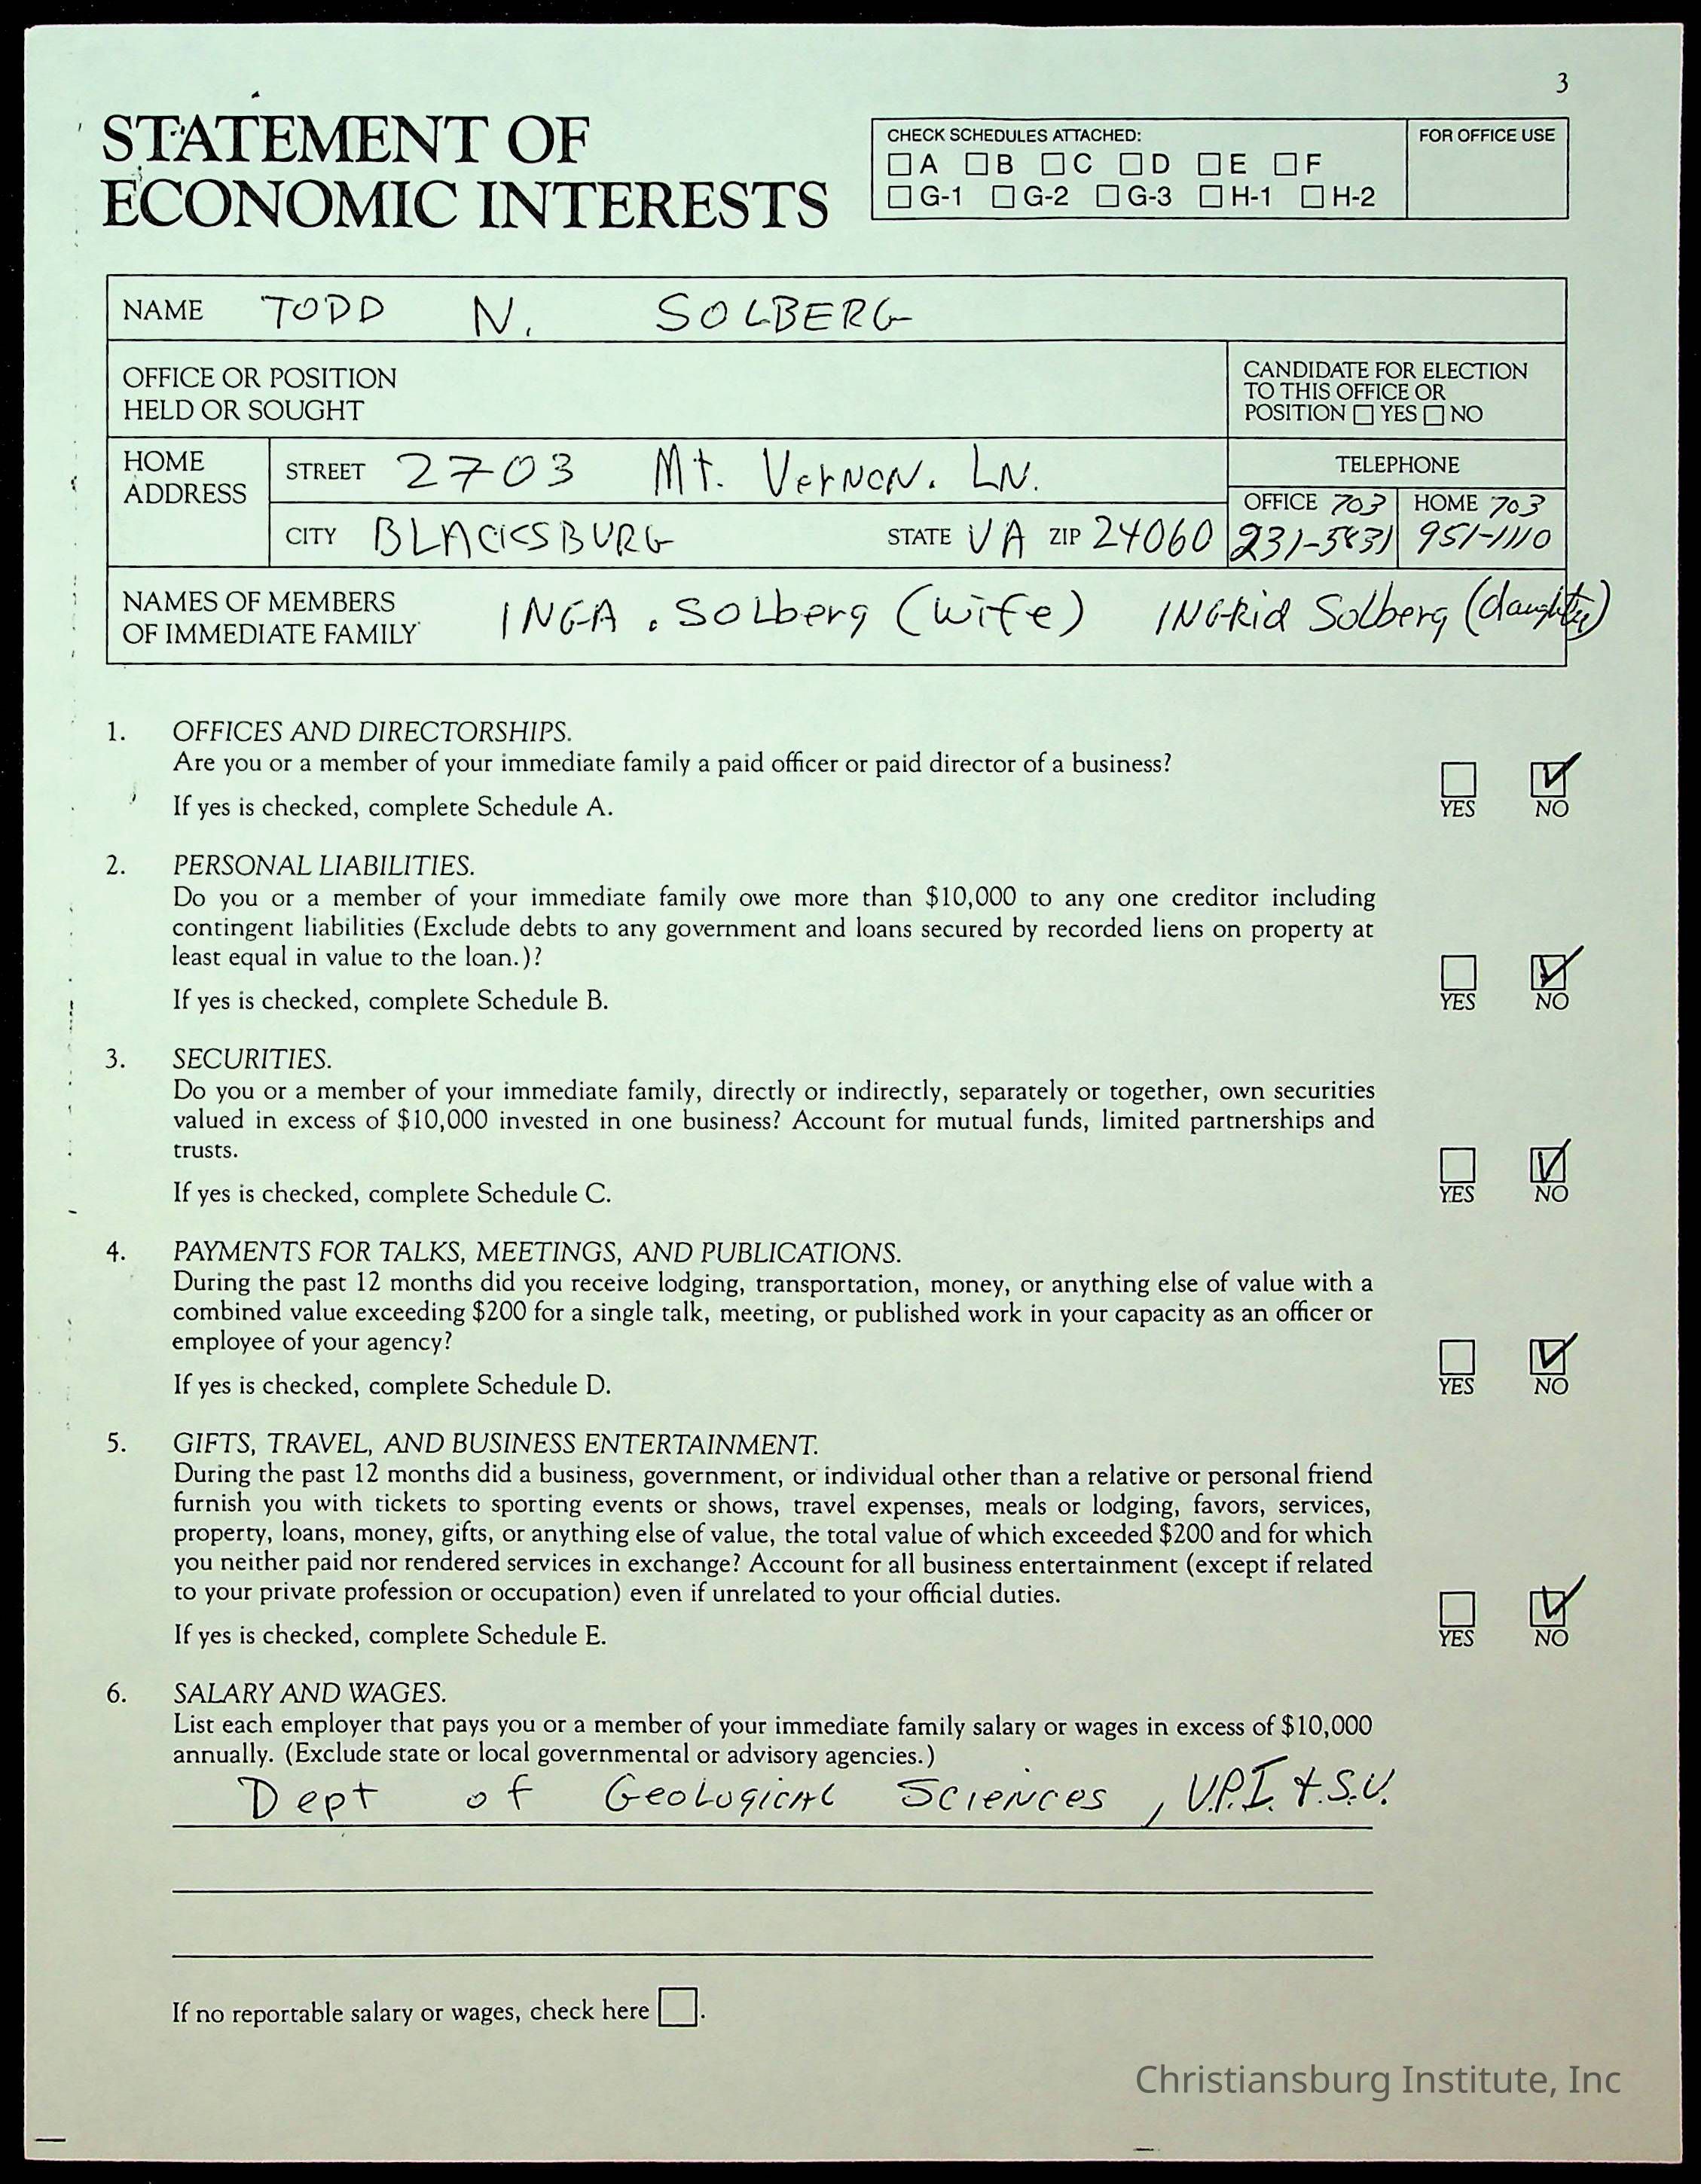 3
STATEMENT OF
ECONOMIC INTERESTS
CHECK SCHEDULES ATTACHED:
☐ A ☐ B ☐ C ☐ D ☐ E ☐ F
☐ G-1 ☐ G-2 ☐ G-3 ☐ H-1 ☐ H-2
FOR OFFICE USE
NAME TODD N. SOLBERG
OFFICE OR POSITION
HELD OR SOUGHT
CANDIDATE FOR ELECTION
TO THIS OFFICE OR
POSITION ☐ YES ☐ NO
HOME
ADDRESS
STREET 2703 Mt. VerNoN. LN.
CITY BLACKSBURG STATE VA ZIP 24060
TELEPHONE
OFFICE 703
231-5831
HOME 703
951-1110
NAMES OF MEMBERS
OF IMMEDIATE FAMILY
INGA . SOLberg (wife) INGRid Solberg (daughter)
1. OFFICES AND DIRECTORSHIPS.
Are you or a member of your immediate family a paid officer or paid director of a business?
If yes is checked, complete Schedule A.
☐ YES ☑ NO
2. PERSONAL LIABILITIES.
Do you or a member of your immediate family owe more than $10,000 to any one creditor including
contingent liabilities (Exclude debts to any government and loans secured by recorded liens on property at
least equal in value to the loan.)?
If yes is checked, complete Schedule B.
☐ YES ☑ NO
3. SECURITIES.
Do you or a member of your immediate family, directly or indirectly, separately or together, own securities
valued in excess of $10,000 invested in one business? Account for mutual funds, limited partnerships and
trusts.
If yes is checked, complete Schedule C.
☐ YES ☑ NO
4. PAYMENTS FOR TALKS, MEETINGS, AND PUBLICATIONS.
During the past 12 months did you receive lodging, transportation, money, or anything else of value with a
combined value exceeding $200 for a single talk, meeting, or published work in your capacity as an officer or
employee of your agency?
If yes is checked, complete Schedule D.
☐ YES ☑ NO
5. GIFTS, TRAVEL, AND BUSINESS ENTERTAINMENT.
During the past 12 months did a business, government, or individual other than a relative or personal friend
furnish you with tickets to sporting events or shows, travel expenses, meals or lodging, favors, services,
property, loans, money, gifts, or anything else of value, the total value of which exceeded $200 and for which
you neither paid nor rendered services in exchange? Account for all business entertainment (except if related
to your private profession or occupation) even if unrelated to your official duties.
If yes is checked, complete Schedule E.
☐ YES ☑ NO
6. SALARY AND WAGES.
List each employer that pays you or a member of your immediate family salary or wages in excess of $10,000
annually. (Exclude state or local governmental or advisory agencies.)
Dept of Geological Sciences, V.P.I. & S.U.
If no reportable salary or wages, check here ☐.
Christiansburg Institute, Inc